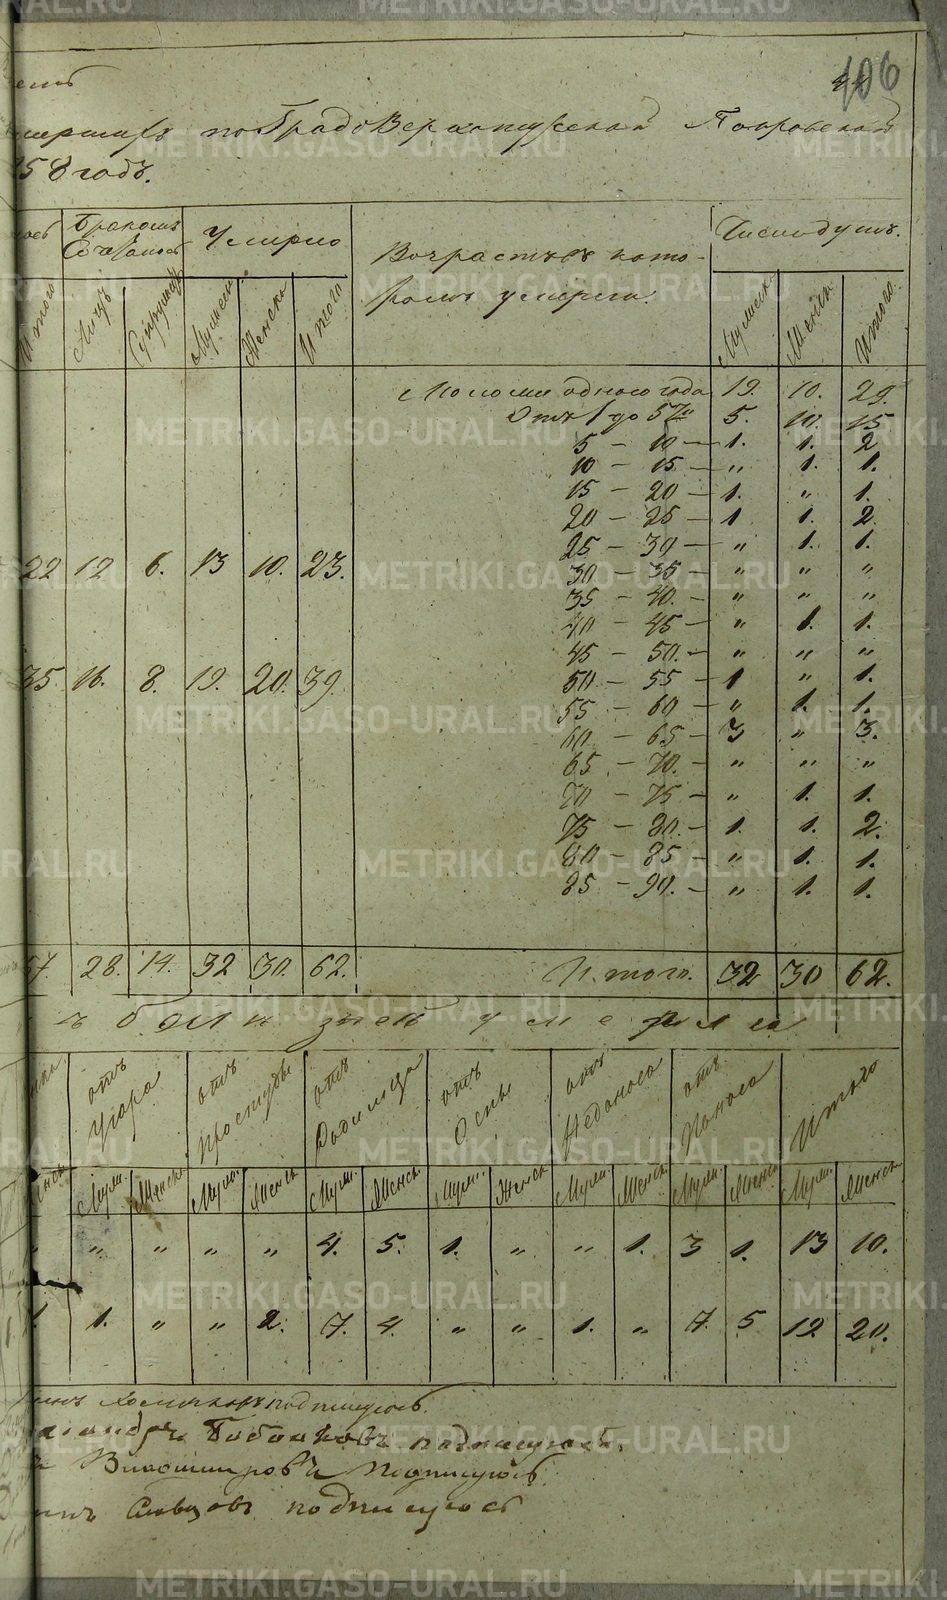 106
умершихъ по Градо Верхотурской Покровской
58 годъ.
Бракомъ Сочталось
Умерло
Возрастъ въ кото-
ромъ умерли.
Число душъ.
Итого Лицъ Супружес Мужеск Женска Итого
Мужеск. Женск. Итого.
Моложе одного года 19. 10. 29.
Отъ 1 до 5ти 5. 10. 15
5 — 10 — 1. 1. 2
10 — 15 — „ 1. 1.
15 — 20 — 1. „ 1.
20 — 25 — 1 1. 2
25 — 30 — „ 1. 1.
22 12 6. 13 10. 23.
30 — 35 — „ „ „
35 — 40. — „ „ „
40 — 45 — „ 1. 1.
45 — 50. — „ „ „
35. 16. 8. 19. 20. 39.
50 — 55 — 1 „ 1.
55 — 60 — „ 1. 1.
60 — 65 — 3 „ 3.
65 — 70. — „ „ „
70 — 75 — „ 1. 1.
75 — 80. — 1. 1. 2.
80 — 85 — „ 1. 1.
85 — 90. — „ 1. 1.
57. 28. 14. 32 30. 62. Итого. 32 30 62.
ъ болезней умерло
отъ Угара отъ Простуды отъ Родимца отъ Оспы отъ Недоноса отъ Поноса Итого
Муж. Женск. Муж. Женск. Муж. Женск. Муж. Женск. Муж. Женск. Муж. Женск. Муж. Женск.
„ „ „ „ „ 4. 5. 1. „ „ 1. 3 1. 13 10.
1. 1. „ „ 2. 7. 4. „ „ 1. „ 7. 5 19 20.
подпишуюсь.
подпишуюсь.
Владимировъ Подпишуюсь
Словцовъ подпишуюсь
METRIKI.GASO-URAL.RU